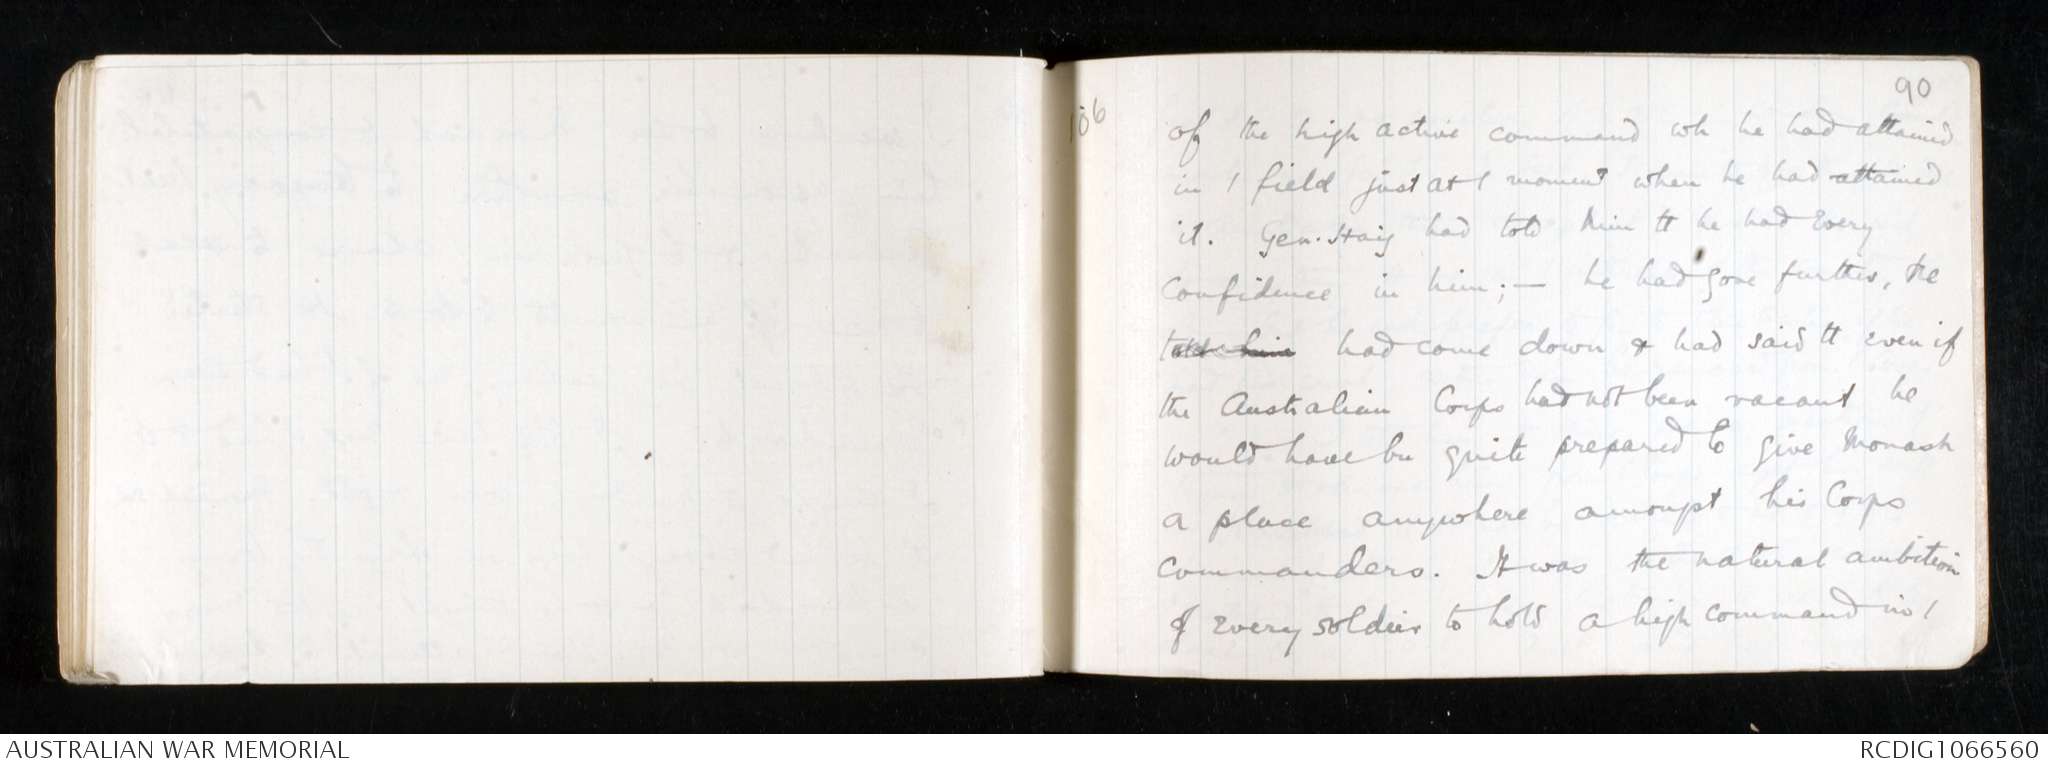 90
106
of the high active command wh he had attained
in / field just at / moment when he had attained
it. Gen. Haig had told him tt he had every
confidence in him; — he had gone further, he
told him had come down & had said tt even if
the Australian Corps had not been vacant he
would have bn quite prepared to give Monash
a place anywhere amongst his Corps
commanders. It was the natural ambition
of every soldier to hold a high command in /
AUSTRALIAN WAR MEMORIAL
RCDIG1066560